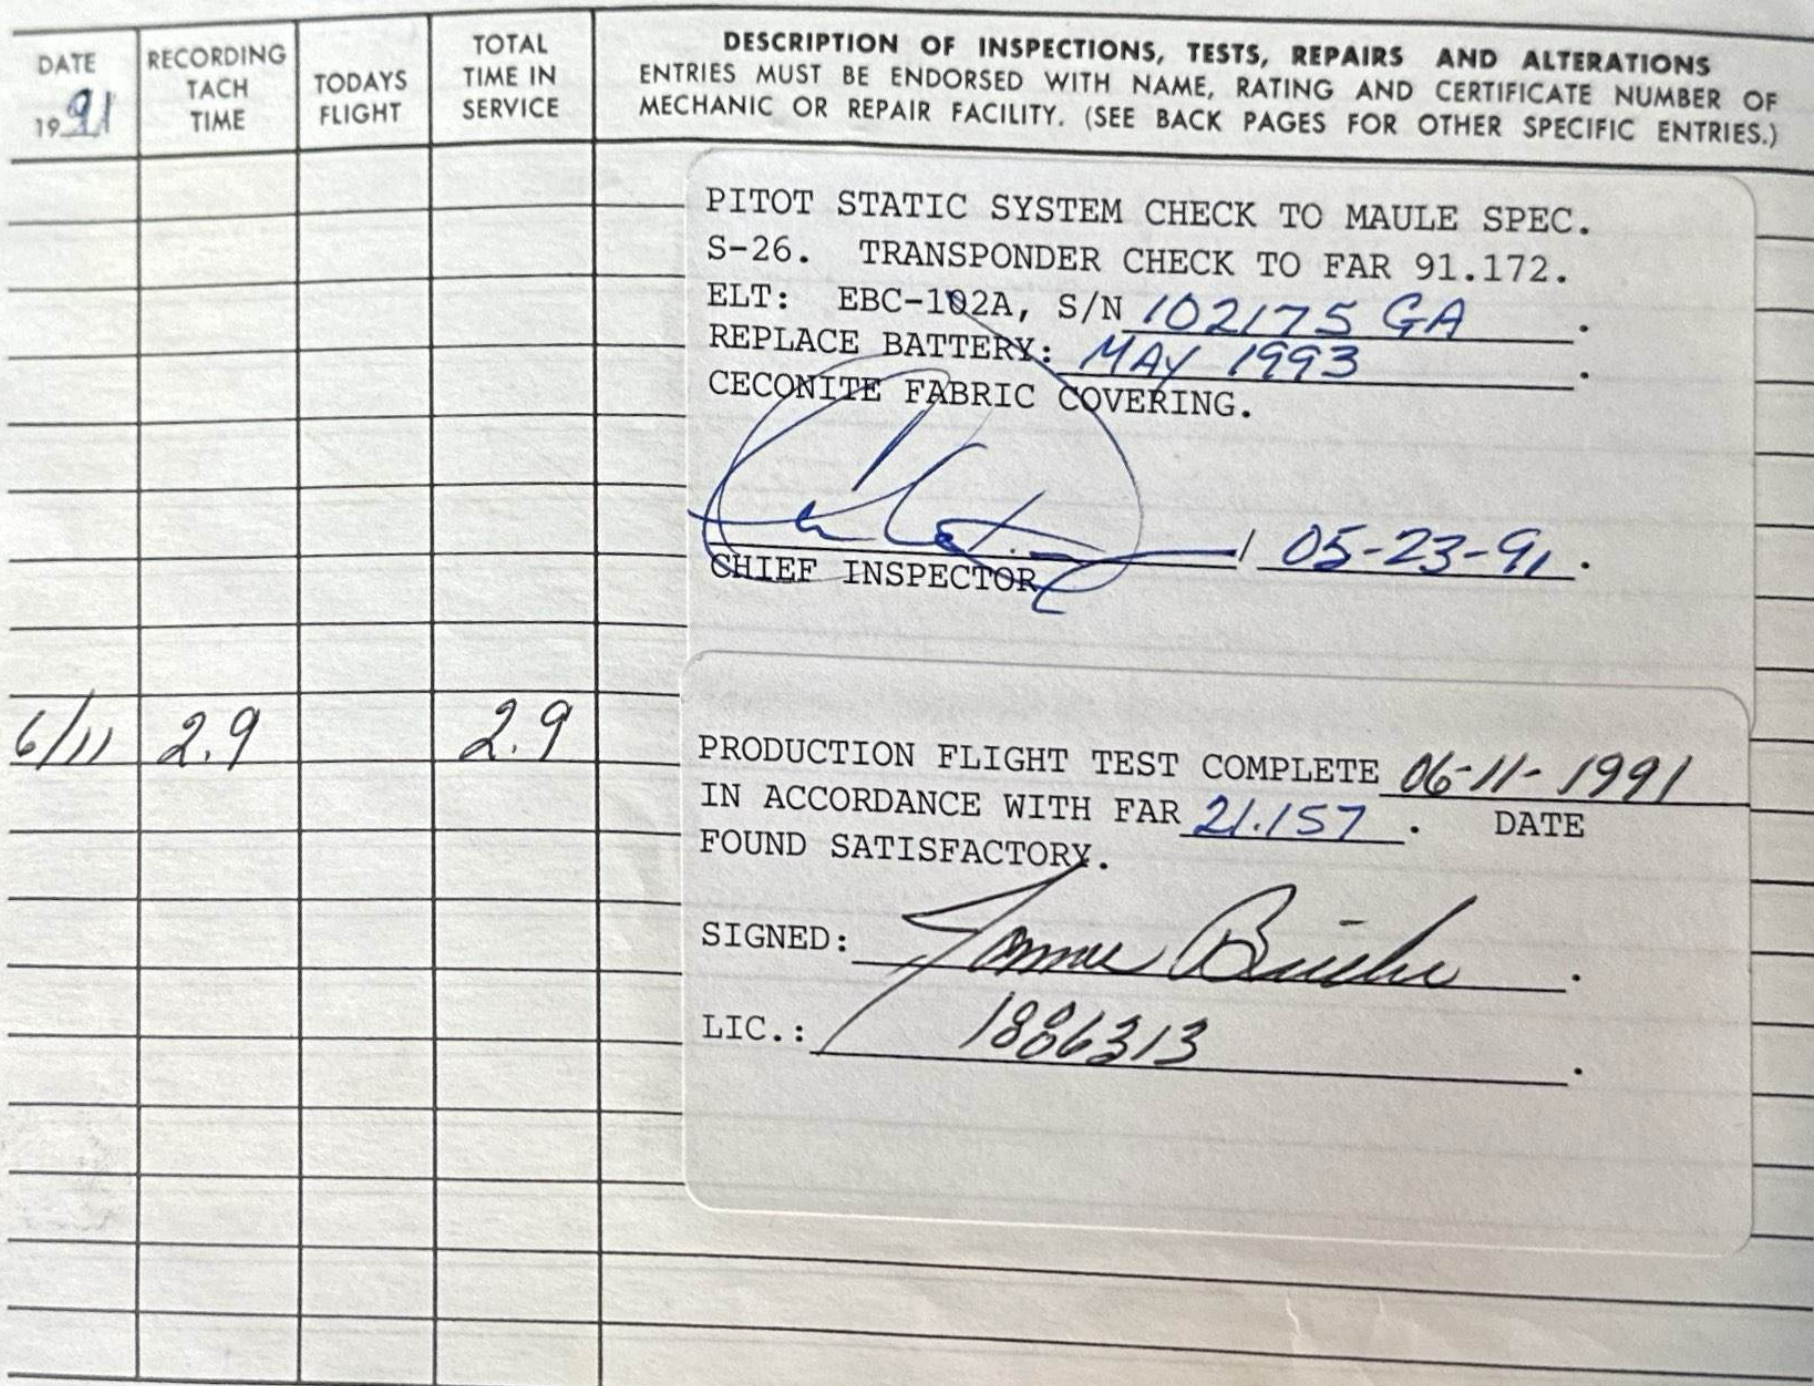 DATE
1991
RECORDING
TACH
TIME
TODAYS
FLIGHT
TOTAL
TIME IN
SERVICE
DESCRIPTION OF INSPECTIONS, TESTS, REPAIRS AND ALTERATIONS
ENTRIES MUST BE ENDORSED WITH NAME, RATING AND CERTIFICATE NUMBER OF
MECHANIC OR REPAIR FACILITY. (SEE BACK PAGES FOR OTHER SPECIFIC ENTRIES.)
PITOT STATIC SYSTEM CHECK TO MAULE SPEC.
S-26. TRANSPONDER CHECK TO FAR 91.172.
ELT: EBC-102A, S/N 102175 GA.
REPLACE BATTERY: MAY 1993.
CECONITE FABRIC COVERING.
/ 05-23-91.
CHIEF INSPECTOR
6/11 2.9 2.9
PRODUCTION FLIGHT TEST COMPLETE 06-11-1991
IN ACCORDANCE WITH FAR 21.157. DATE
FOUND SATISFACTORY.
SIGNED:
LIC.: 1886313.